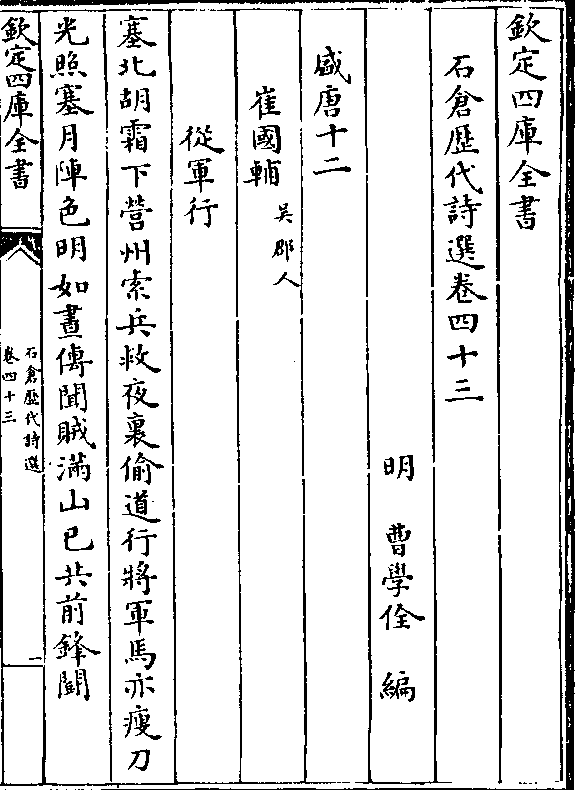 欽定四庫全書
石倉歷代詩選卷四十三
明 曹學佺 編
盛唐十二
崔國輔 吳郡人
從軍行
塞北胡霜下營州索兵救夜裏偷道行將軍馬亦瘦刀
光照塞月陣色明如晝傳聞賊滿山已共前鋒鬭
欽定四庫全書
石倉歷代詩選
卷四十三
一